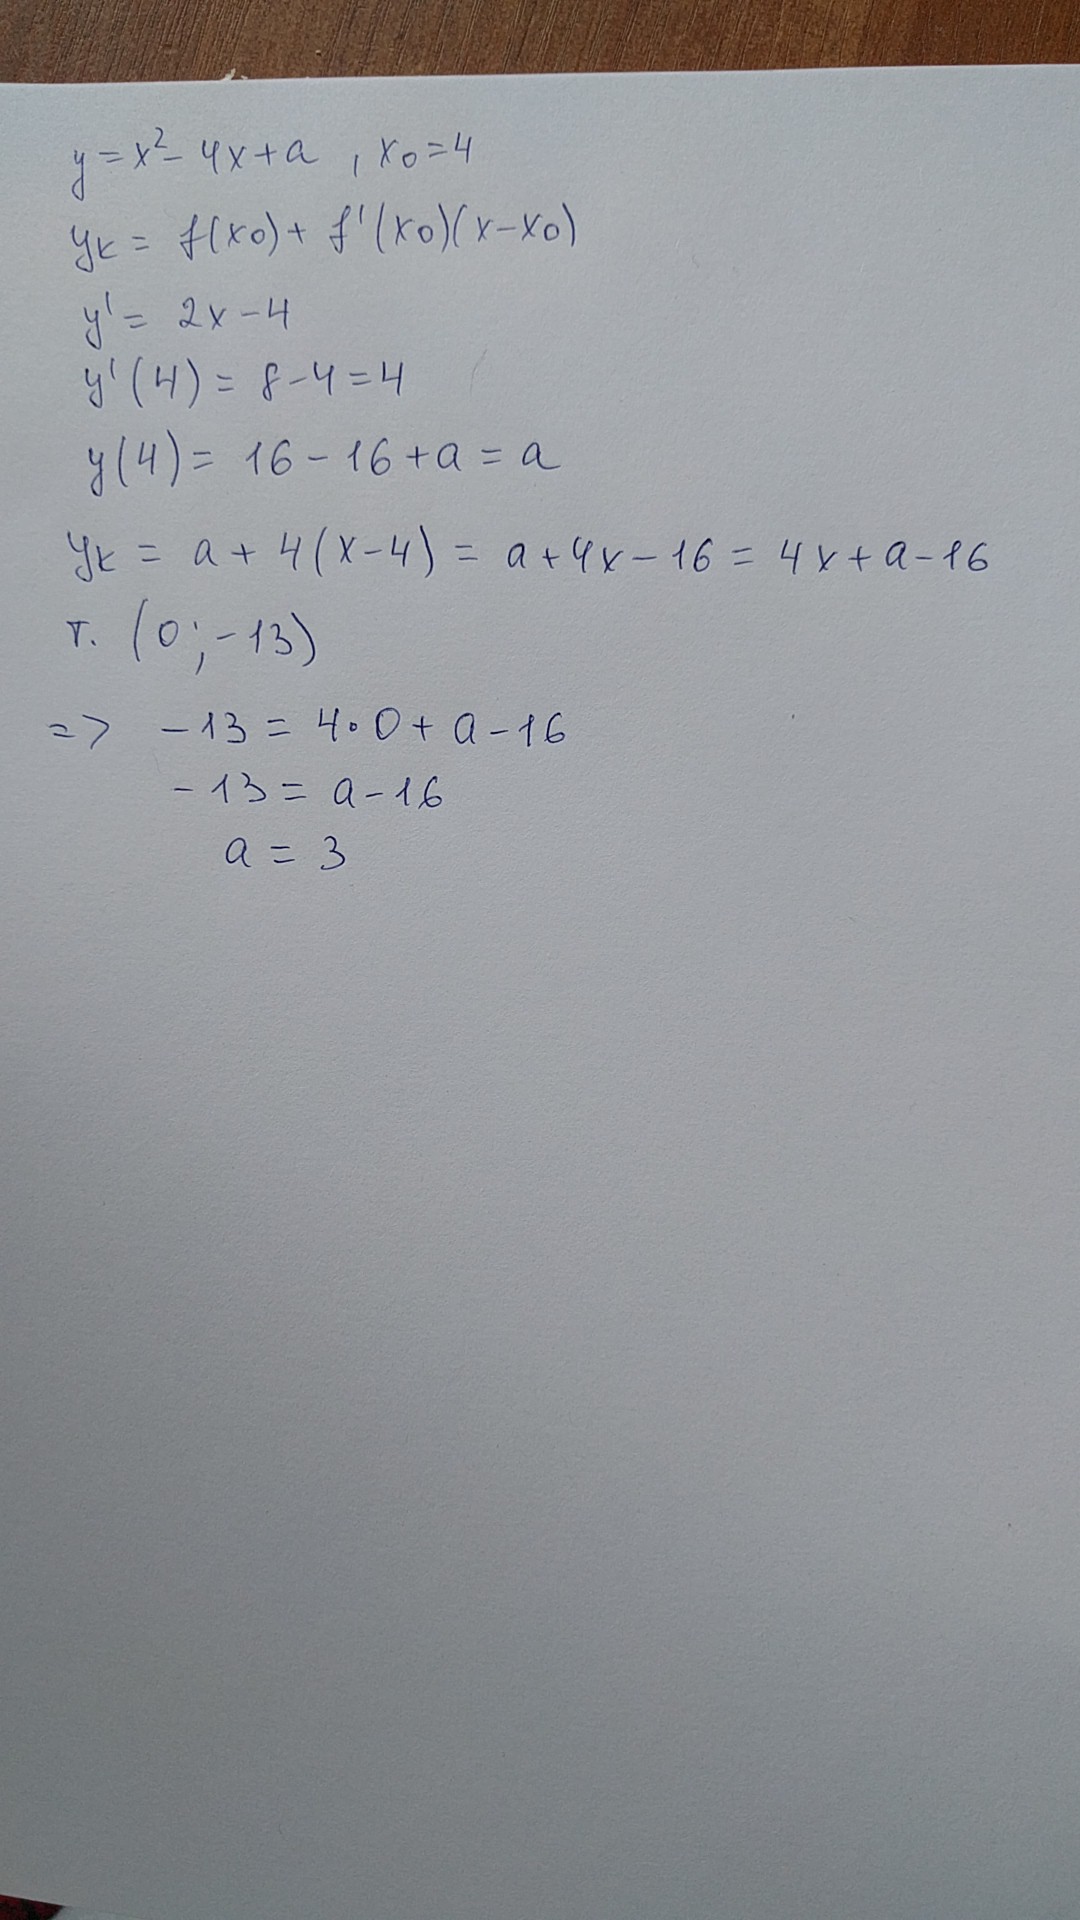 y = x² - 4x + a , x₀ = 4
yк = f(x₀) + f'(x₀)(x - x₀)
y' = 2x - 4
y'(4) = 8 - 4 = 4
y(4) = 16 - 16 + a = a
yк = a + 4(x - 4) = a + 4x - 16 = 4x + a - 16
т. (0; -13)
=> -13 = 4·0 + a - 16
-13 = a - 16
a = 3